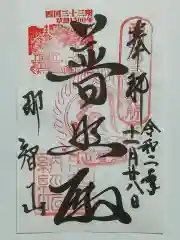 奉拝
令和二年
十一月廿八日
西国三十三所
草創1300年
普照殿
那智山